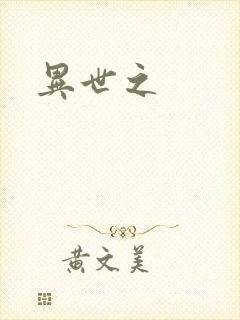 異世之
黄文美